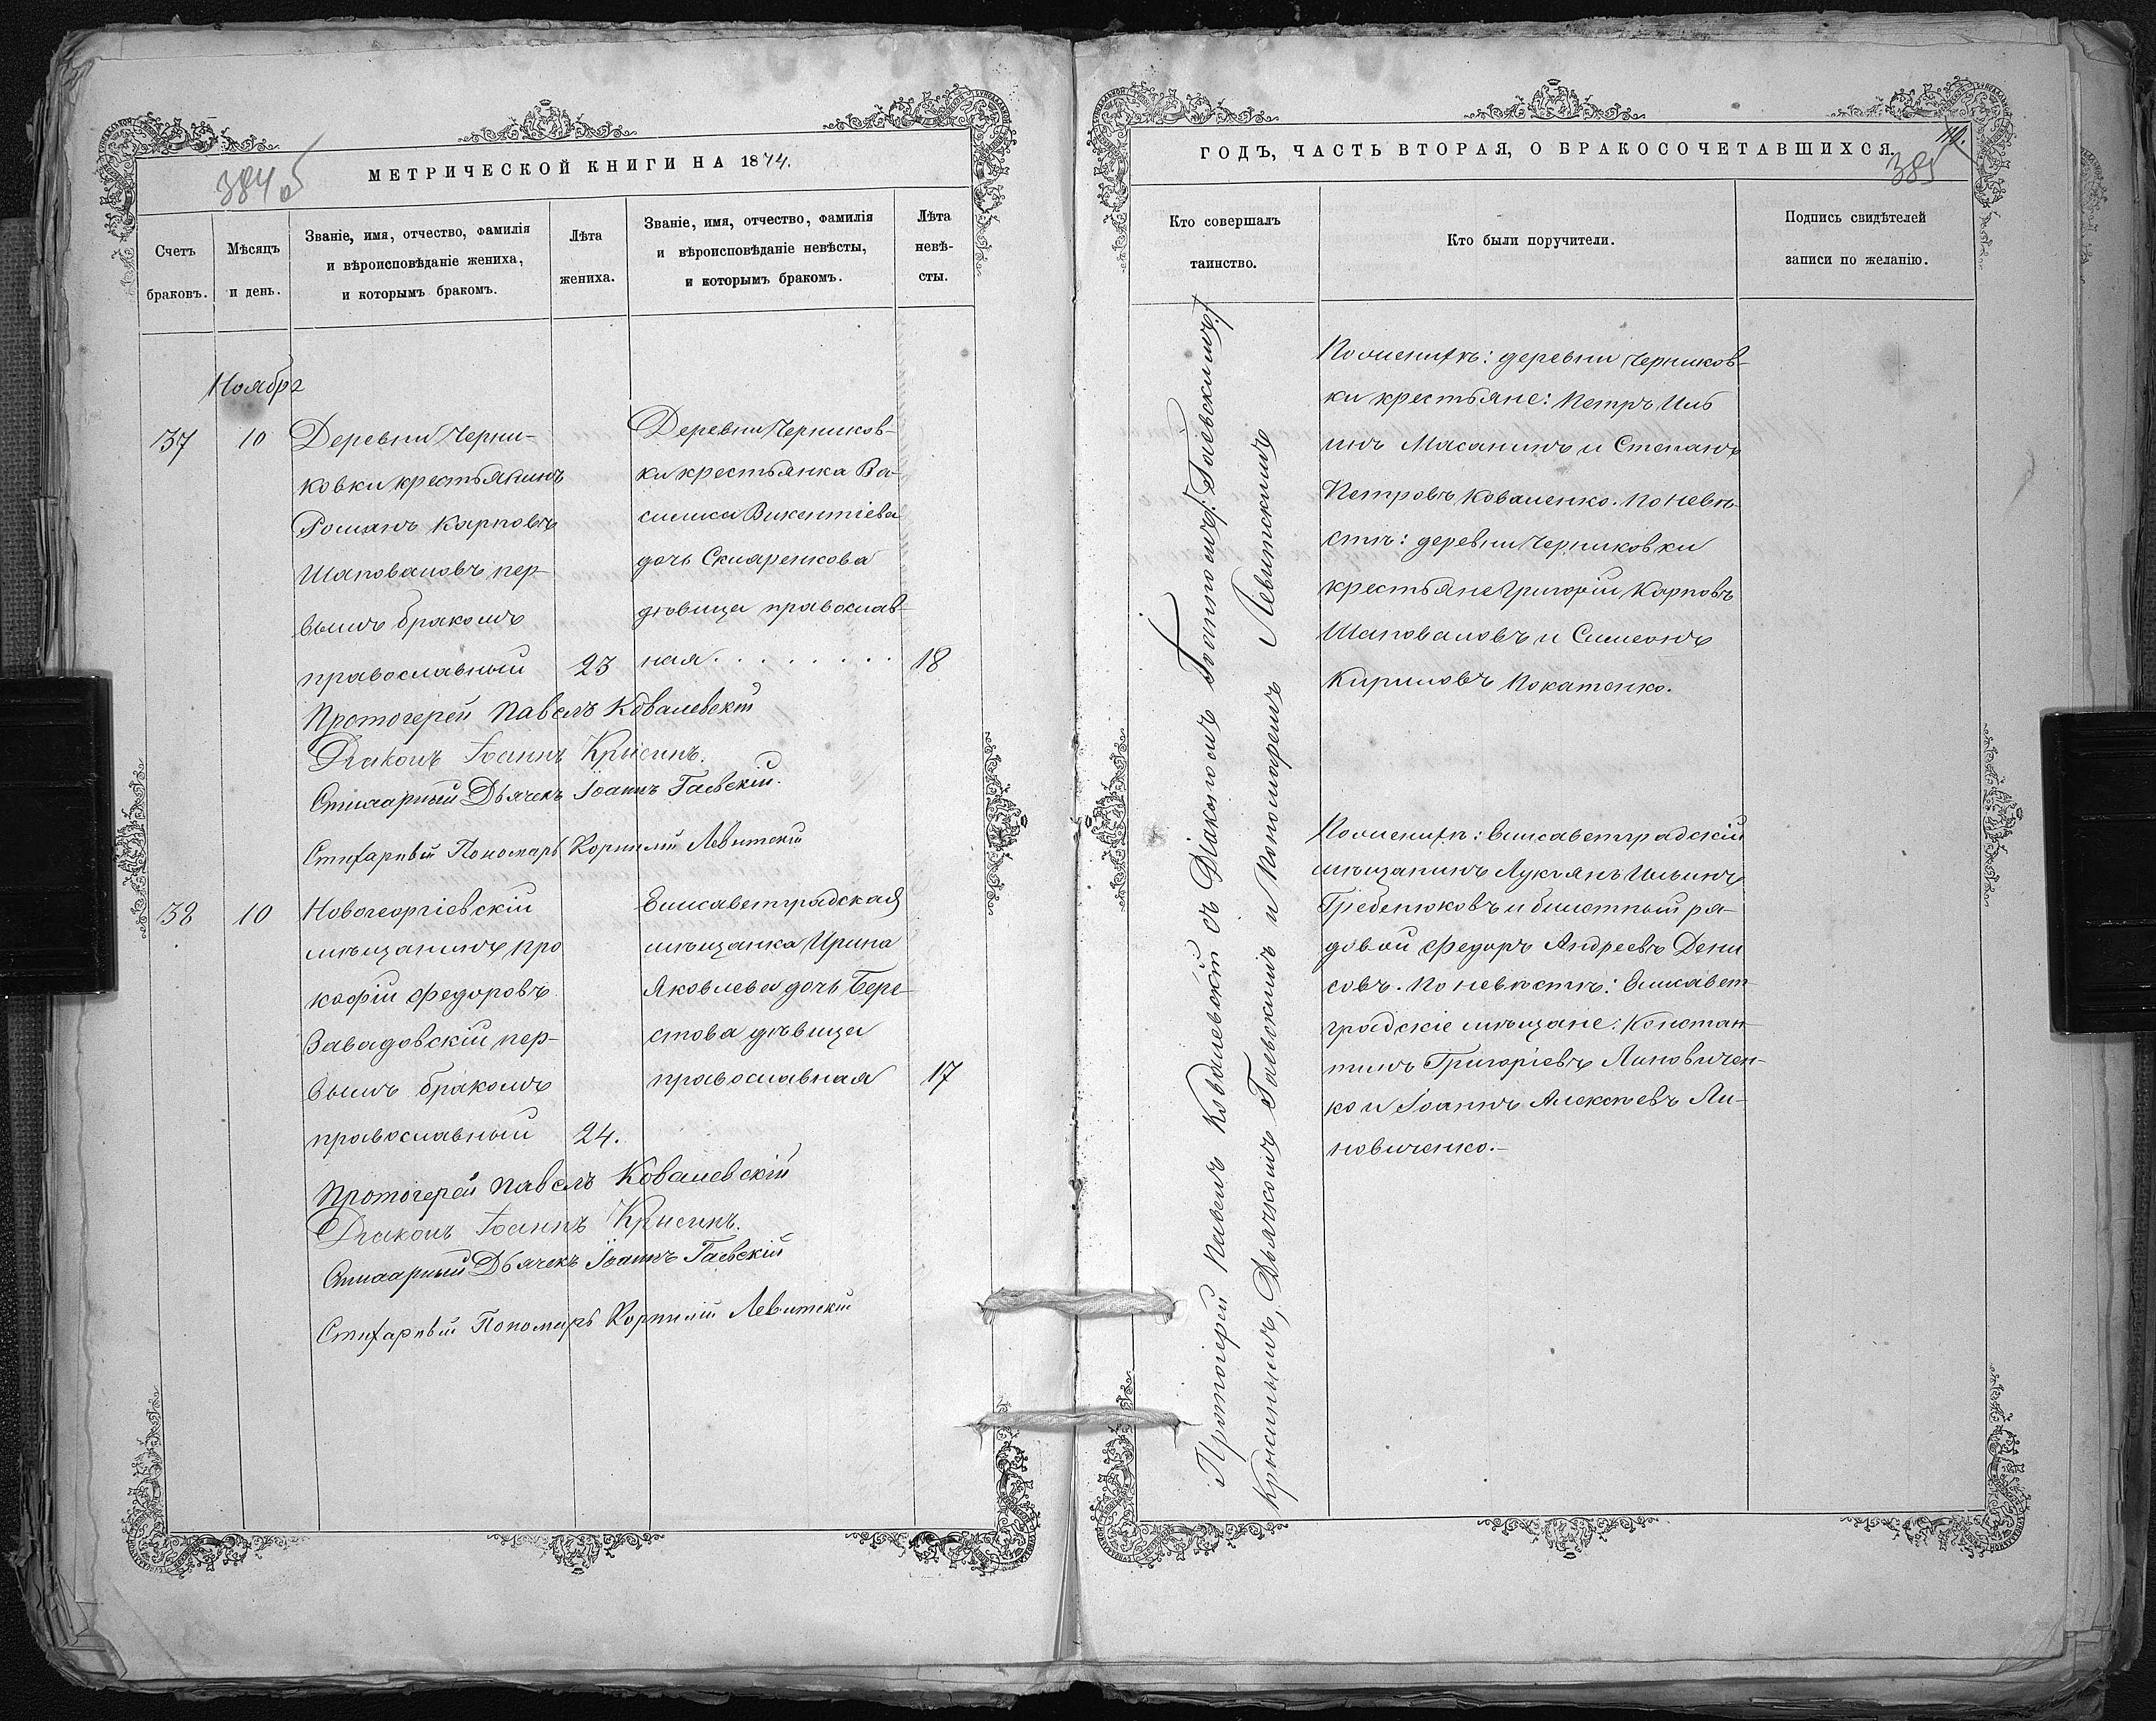 МЕТРИЧЕСКОЙ КНИГИ НА 1874.
384 об
Счетъ
браковъ.
Мѣсяцъ
и день.
Званіе, имя, отчество, фамилія
и вѣроисповѣданіе жениха,
и которымъ бракомъ.
Лѣта
жениха.
Званіе, имя, отчество, фамилія
и вѣроисповѣданіе невѣсты,
и которымъ бракомъ.
Лѣта
невѣ-
сты.
Ноября
37
10
Деревни Черни-
ковки крестьянинъ
Романъ Карповъ
Шаповаловъ пер-
вымъ бракомъ
православный
23
Деревни Черников-
ки крестьянка Ва-
силиса Викентіева
дочь Скляренкова
дѣвица православ-
ная . . . . . . . .
18
Протоіерей Павелъ Ковалевскій
Діаконъ Іоаннъ Крысинъ.
Стихарный Дьячекъ Іоаннъ Гаевскій.
Стихарный Пономарь Корнилій Левитскій
38
10
Новогеоргіевскій
мѣщанинъ Про
кофій Федоровъ
Завадовскій пер-
вымъ бракомъ
православный
24.
Елисаветградская
мѣщанка Ирина
Яковлева дочь Бере-
стова дѣвица
православная
17
Протоіерей Павелъ Ковалевскій
Діаконъ Іоаннъ Крысинъ.
Стихарный Дьячекъ Іоаннъ Гаевскій
Стихарный Пономарь Корнилій Левитскій
ГОДЪ, ЧАСТЬ ВТОРАЯ, О БРАКОСОЧЕТАВШИХСЯ.
385
Кто совершалъ
таинство.
Кто были поручители.
Подпись свидѣтелей
записи по желанію.
Протоіерей Павелъ Ковалевскій съ Діакономъ Іоанномъ
Крысинымъ, Дьячкомъ Гаевскимъ и Пономаремъ Левитскимъ
По женихѣ: деревни Черников-
ки крестьяне: Петръ Иль
инъ Масанинъ и Степанъ
Петровъ Коваленко. По невѣ-
стѣ: деревни Черниковки
крестьяне Григорій Карповъ
Шаповаловъ и Симеонъ
Кириловъ Покатенко.
По женихѣ: Елисаветградскій
мѣщанинъ Лукіянъ Ильинъ
Гребенюковъ и билетный ря-
довой Федоръ Андреевъ Дени
совъ. По невѣстѣ: Елисавет-
градскіе мѣщане: Констан-
тинъ Григоріевъ Линовичен-
ко и Іоаннъ Алексѣевъ Ли-
новиченко.-